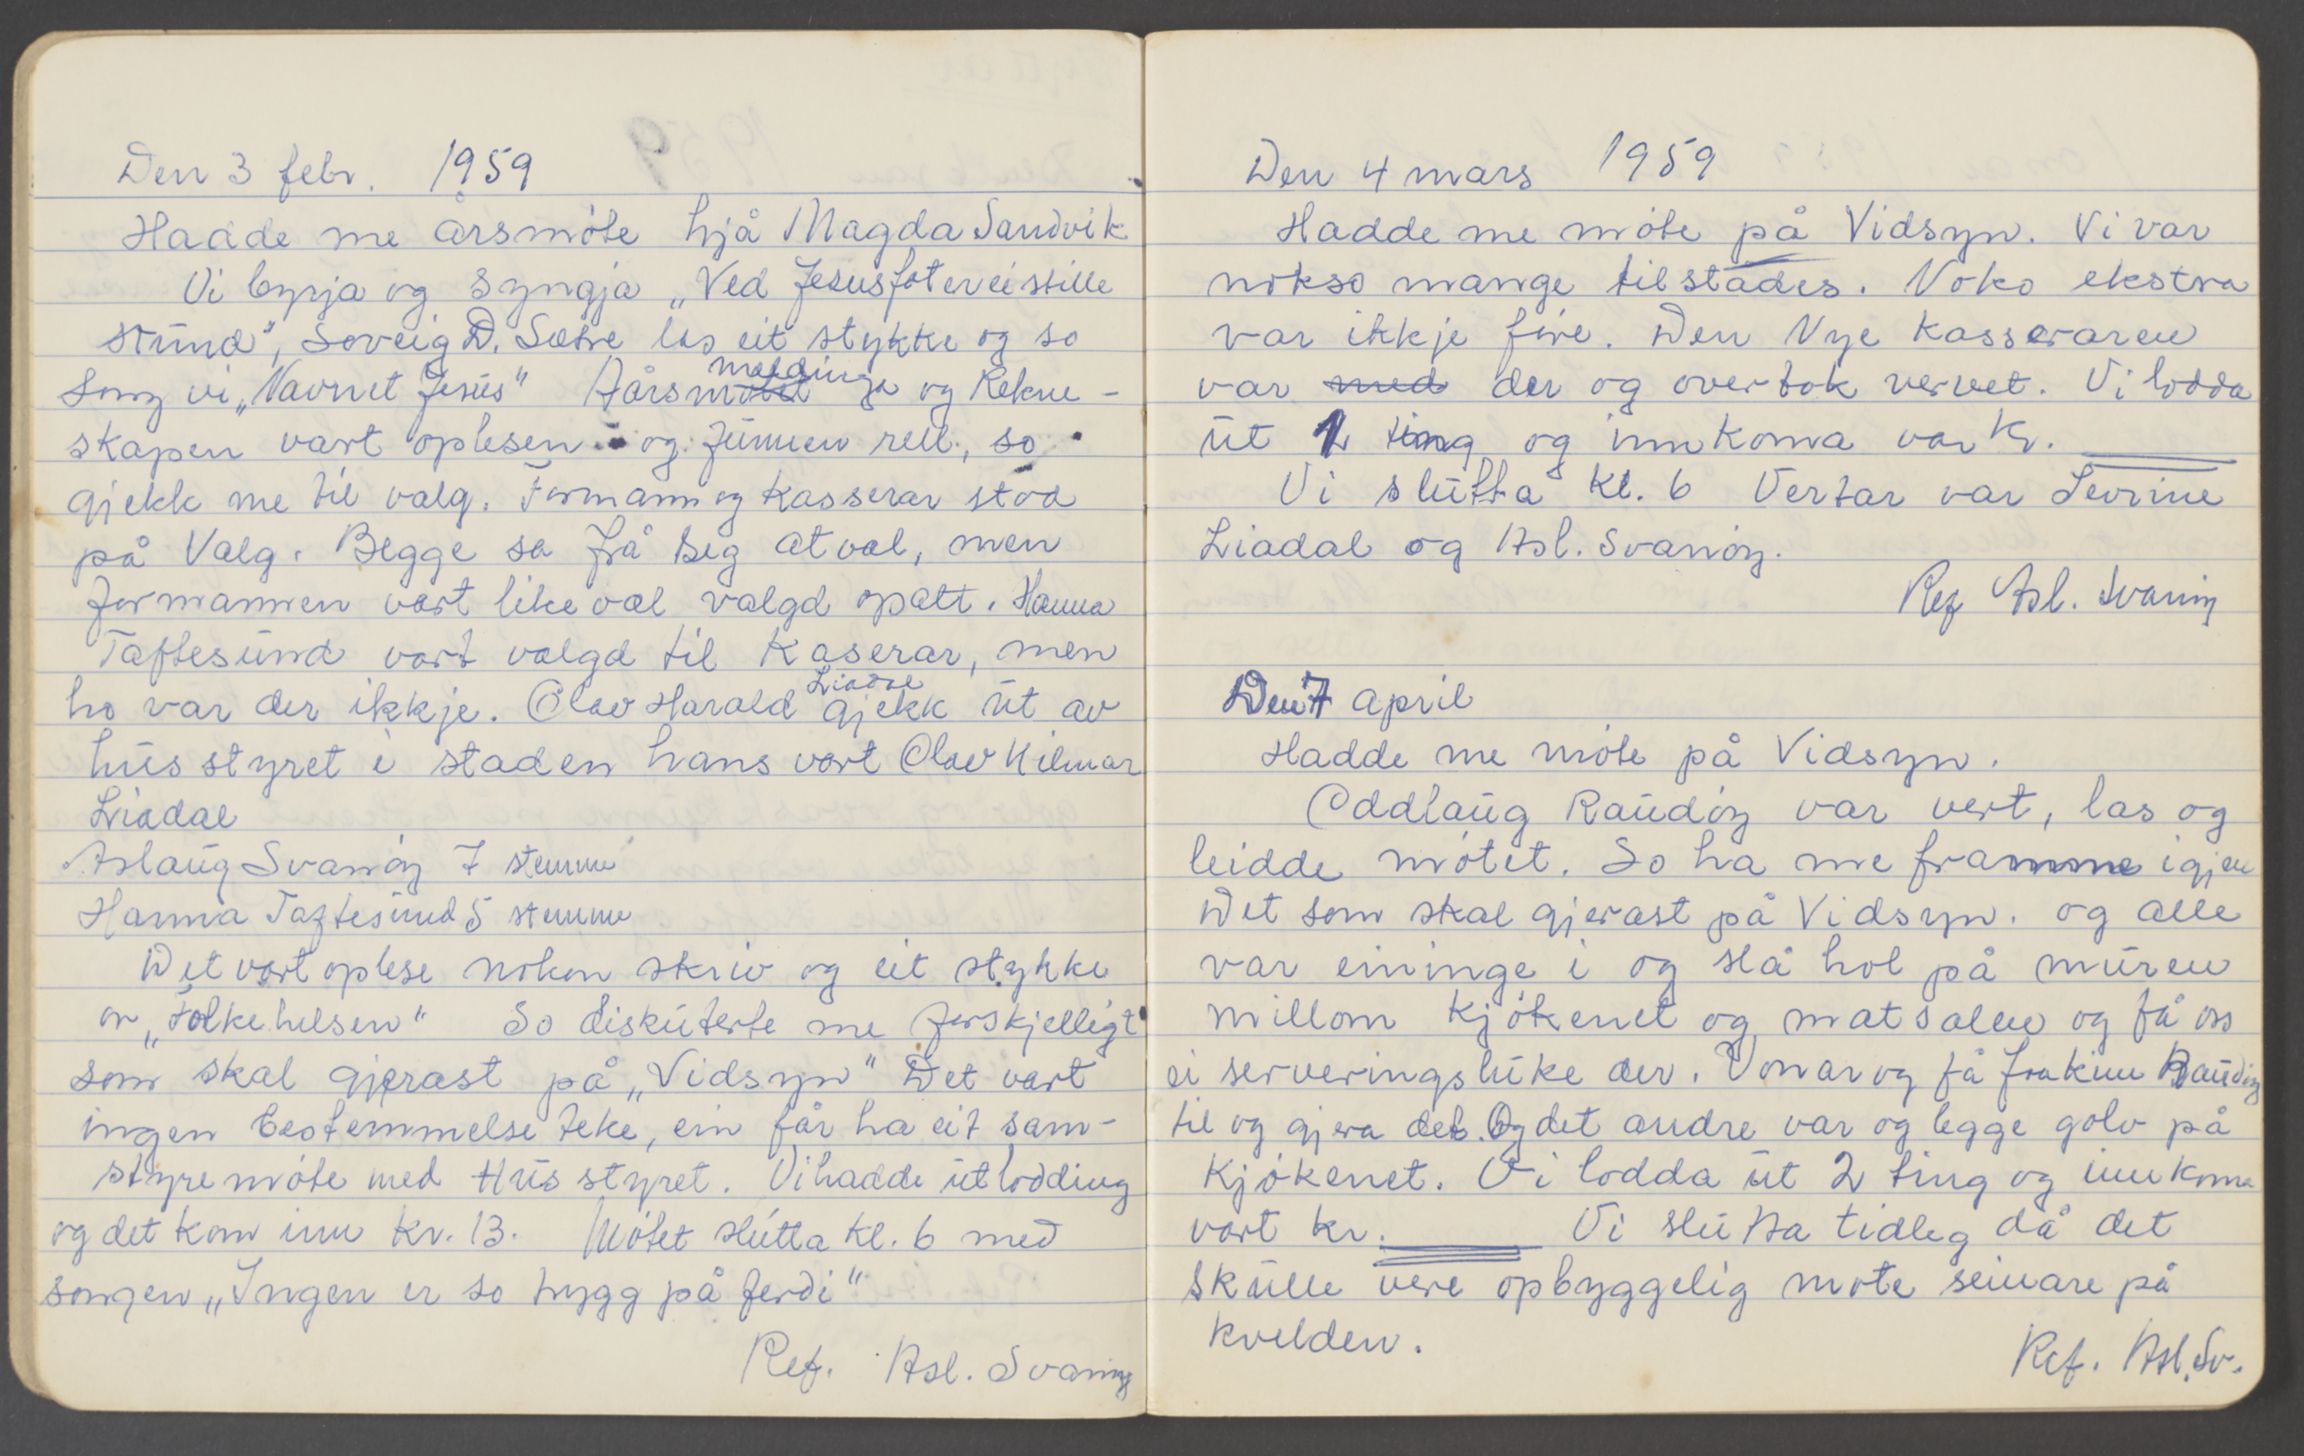 Den 3 febr. 1959
Hadde me årsmöte hjå Magda Sandvik
Vi byrja og syngja „Ved Jesusfot er ei stille
stund", Soveig D. Sætre las eit stykke og so
song vi „Navnet Jesus" Aårsmeldinga og Rekne-
skapen vart oplesen og funnen rett, so
gjekk me til valg. Formann og Kasserar stod
på Valg. Begge sa frå seg atval, men
formannen vart likeval valgd opatt. Hanna
Taftesund vart valgd til Kaserar, men
ho var der ikkje. Olav Harald Liadal gjekk ut av
husstyret i staden hans vart Olav Hilmar
Liadal
Aslaug Svanöy 7 stemme
Hanna Taftesund 5 stemme
Det vart oplese nokon skriv og eit stykke
or „Folkehelsen" So diskuterte me forskjelligt
som skal gjerast på „Vidsyn" Det vart
ingen bestemmelse teke, ein får ha eit sam-
styremöte med Husstyret. Vi hadde utlodding
og det kom inn kr. 13. Mötet slutta kl. 6 med
songen „Ingen er so trygg på ferdi"
Ref. Asl. Svanöy
Den 4 mars 1959
Hadde me möte på Vidsyn. Vi var
nokso mange tilstades. Noko ekstra
var ikkje fire. Den Nye Kasseraren
var med der og overtok vervet. Vi lodda
ut ting og innkoma var kr.
Vi slutta kl. 6 Vertar var Sevrine
Liadal og Asl. Svanöy.
Ref Asl. Svanöy
Den 7 april
Hadde me möte på Vidsyn.
Oddlaug Raudöy var vert, las og
leidde mötet. So ha me framme igjen
Det som skal gjerast på Vidsyn. og alle
var eininge i og slå hol på muren
millom kjökenet og matsalen og få oss
ei serveringsluke der. Vonar og få Joakim Raudöy
til og gjera det. Og det andre var og legge golv på
Kjökenet. Vi lodda ut 2 ting og innkoma
vart kr. Vi slutta tidleg då det
skulle vere opbyggelig mote seinare på
kvelden.
Ref. Asl. Sv.